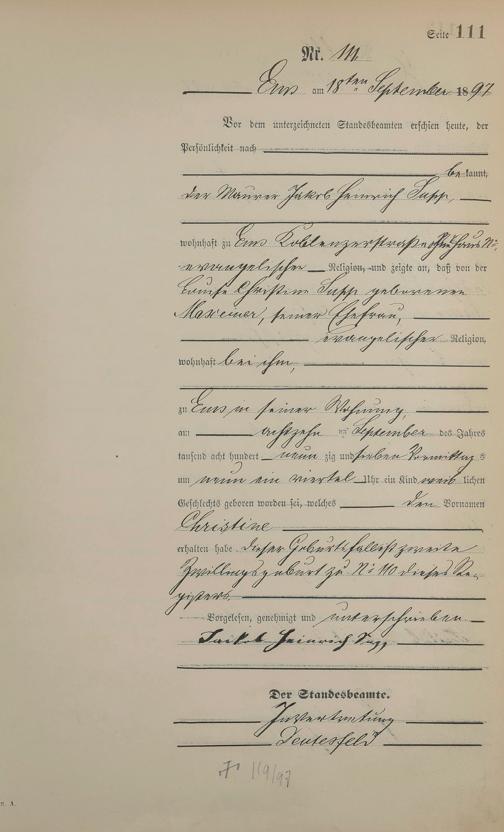 Seite 111
Nr. 111
Ems am 18ten September 1897
Vor dem unterzeichneten Standesbeamten erschien heute, der
Persönlichkeit nach
bekannt,
der Maurer Jakob Heinrich
wohnhaft zu Ems Koblenzerstraße ohne Haus Nr.
evangelischer Religion, und zeigte an, daß von der
Louise Christine geborenen
Maxeiner, seiner Ehefrau,
evangelischer Religion,
wohnhaft bei ihm,
zu Ems in seiner Wohnung,
am achtzehn ten September des Jahres
tausend acht hundert neun zig und sieben Vormittags
um neun ein viertel Uhr ein Kind weiblichen
Geschlechts geboren worden sei, welches den Vornamen
Christine
erhalten habe. Dieser Geburtsfall ist zweite
Zwillingsgeburt zu Nr. 110 dieses Re-
gisters.
Vorgelesen, genehmigt und unterschrieben
Jakob Heinrich
Der Standesbeamte.
In Vertretung
119/97